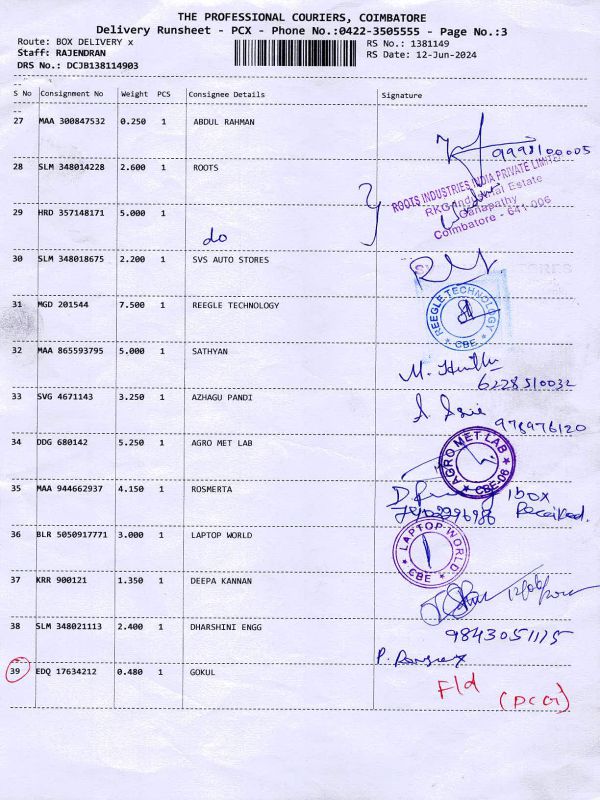 THE PROFESSIONAL COURIERS, COIMBATORE
Delivery Runsheet - PCX - Phone No.:0422-3505555 - Page No.:3
Route: BOX DELIVERY x
RS No.: 1381149
Staff: RAJENDRAN
RS Date: 12-Jun-2024
DRS No.: DCJB138114903
S No Consignment No Weight PCS Consignee Details Signature
27 MAA 300847532 0.250 1 ABDUL RAHMAN
9998100005
28 SLM 348014228 2.600 1 ROOTS
ROOTS INDUSTRIES INDIA PRIVATE LIMITED
RKG Industrial Estate
Ganapathy
Coimbatore - 641 006
29 HRD 357148171 5.000 1
do
30 SLM 348018675 2.200 1 SVS AUTO STORES
31 MGD 201544 7.500 1 REEGLE TECHNOLOGY
REEGLE TECHNOLOGY
* CBE *
32 MAA 865593795 5.000 1 SATHYAN
6228510032
33 SVG 4671143 3.250 1 AZHAGU PANDI
978976120
34 DDG 680142 5.250 1 AGRO MET LAB
AGRO MET LAB
* CBE-06 *
35 MAA 944662937 4.150 1 ROSMERTA
1 box
Received.
36 BLR 5050917771 3.000 1 LAPTOP WORLD
LAPTOP WORLD
* CBE *
37 KRR 900121 1.350 1 DEEPA KANNAN
38 SLM 348021113 2.400 1 DHARSHINI ENGG
9843051115
39 EDQ 17634212 0.480 1 GOKUL
F/d
(DCG)